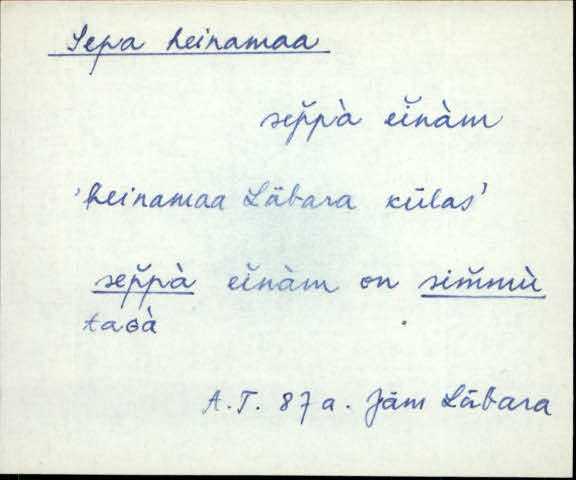 Sepa heinamaa
sep̆pà eĭnàm
'heinamaa Läbara külas'
sep̆pà eĭnàm on sim̆mù
taɢà
A.T. 87a. Jäm Läbara